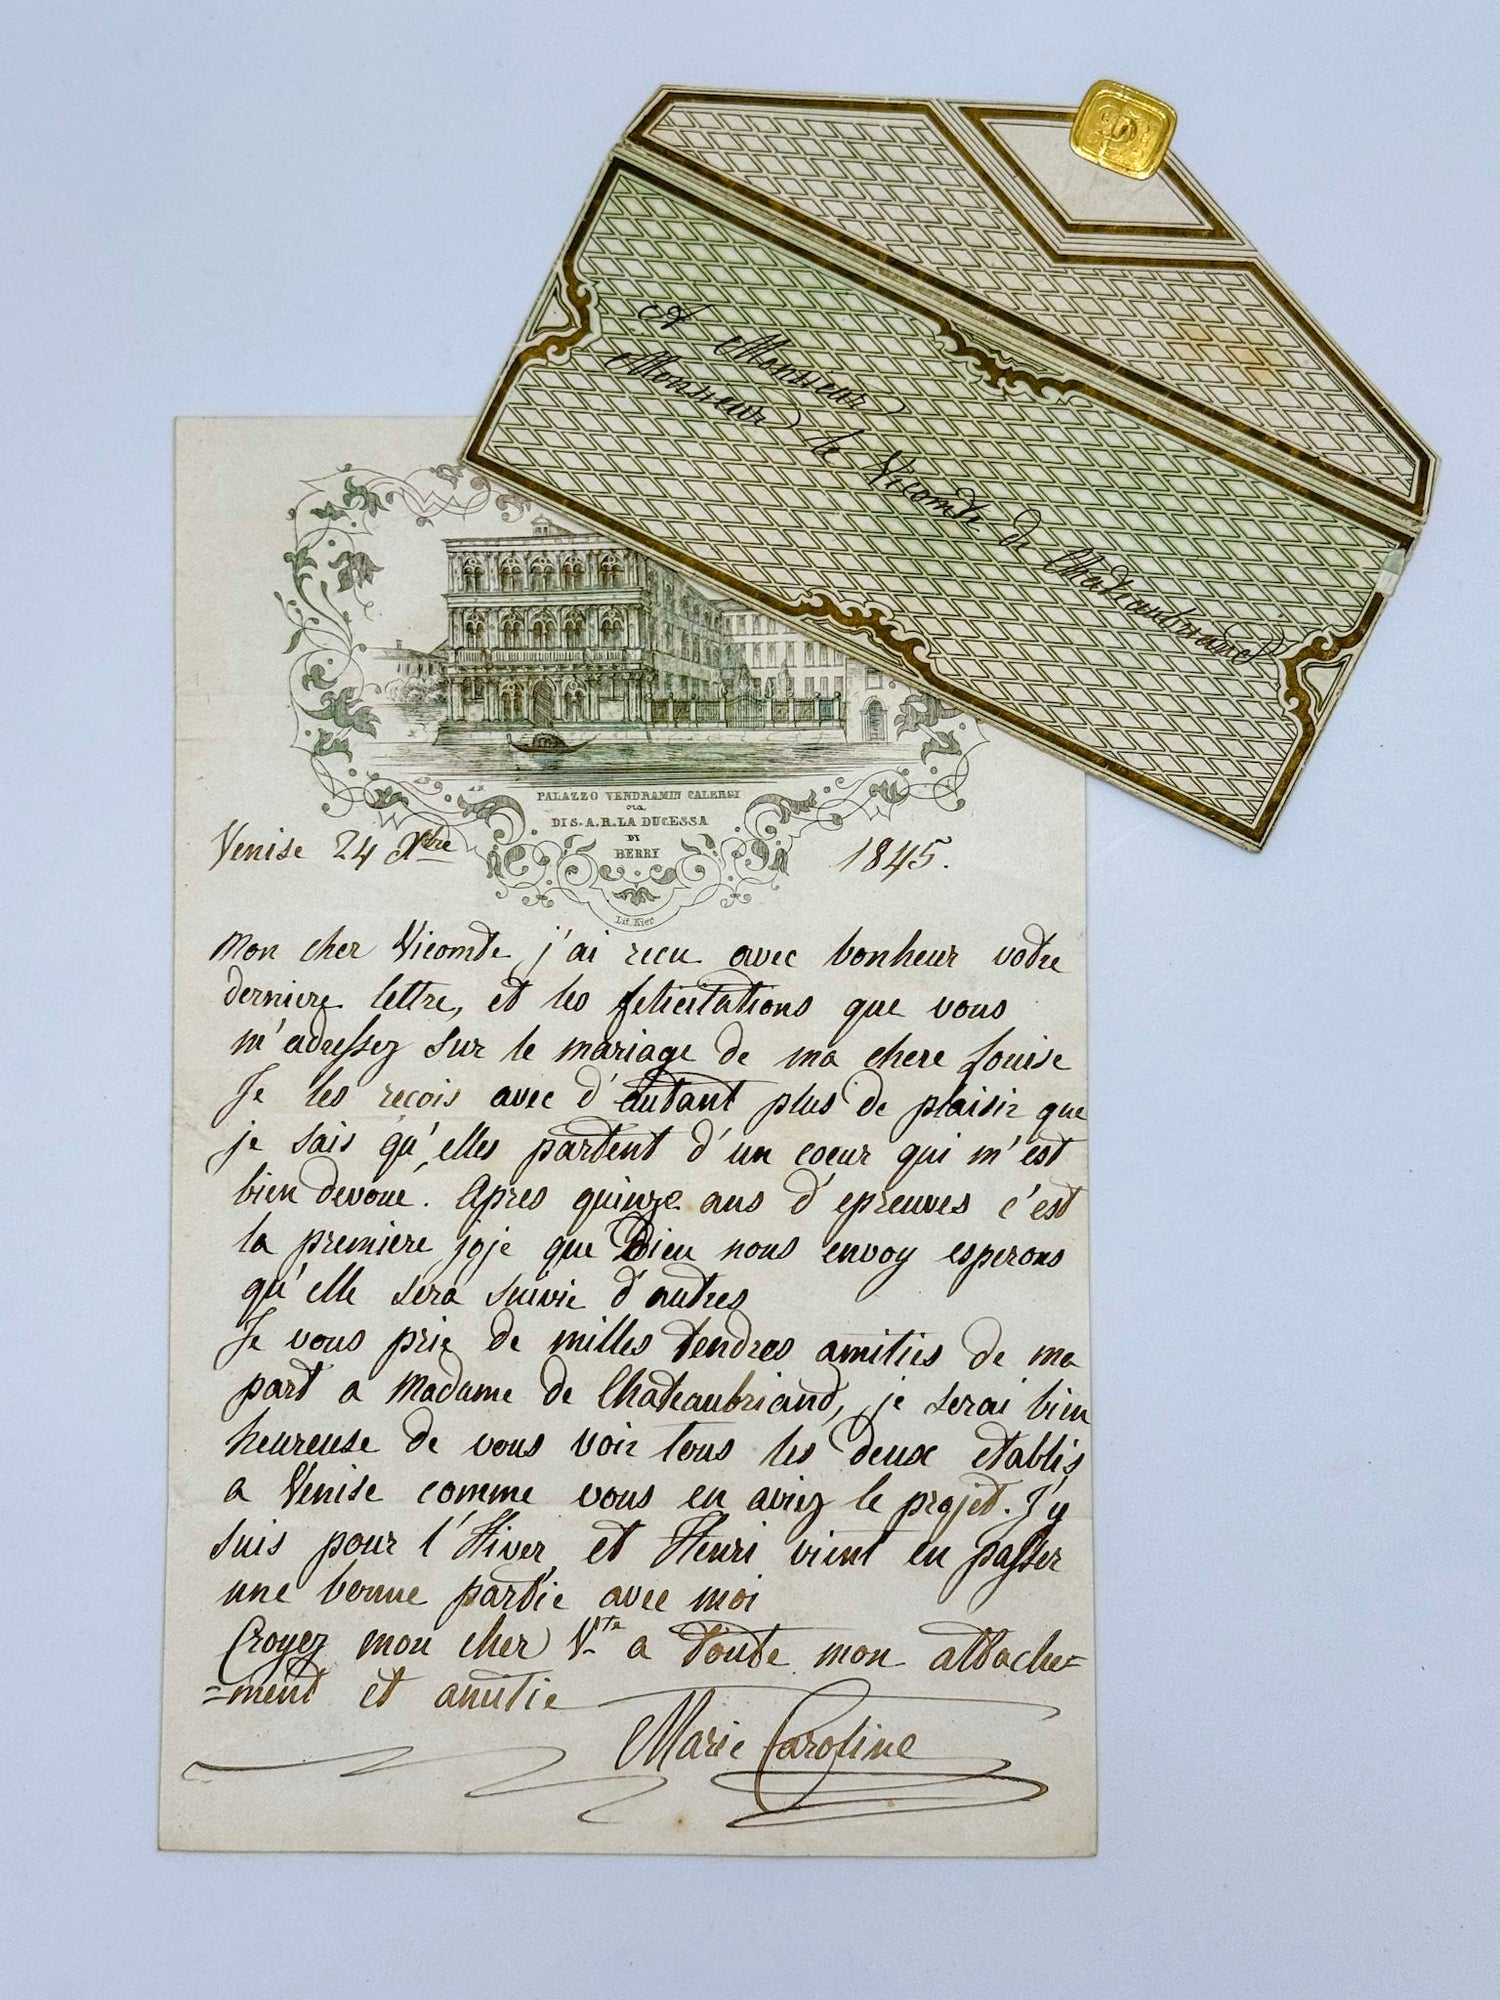 A Monsieur
Monsieur le Vicomte de Chateaubriand
PALAZZO VENDRAMIN CALERGI
ora
DI S.A.R. LA DUCESSA
DI
BERRY
Lit. Kier
Venise 24 Xbre 1845.
Mon cher Vicomte j'ai recu avec bonheur votre
derniere lettre, et les felicitations que vous
m'adressez sur le mariage de ma chere Louise
Je les recois avec d'autant plus de plaisir que
je sais qu'elles partent d'un coeur qui m'est
bien devoué. Apres quinze ans d'epreuves c'est
la premiere joje que Dieu nous envoy esperons
qu'elle sera suivie d'autres
Je vous prie de milles tendres amities de ma
part a Madame de Chateaubriand, je serai bien
heureuse de vous voir tous les deux etablis
a Venise comme vous en aviez le projet. J'y
suis pour l'Hiver et Henri vient en passer
une bonne partie avec moi
Croyez mon cher Vte a toute mon attache=
=ment et amitie
Marie Caroline